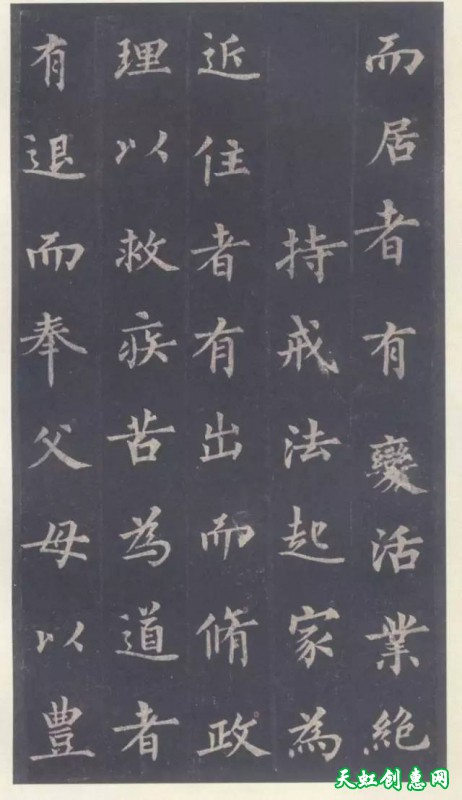 而居者有變活業絶
持戒法起家為
近住者有出而脩政
理以救疾苦為道者
有退而奉父母以豊
天虹创惠网